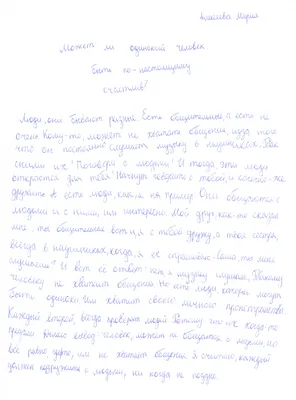 Алексеева Мария
Может ли одинокий человек
быть по-настоящему
счастлив?
Люди, они бывают разные. Есть общительные, а есть не
очень. Кому-то, может не хватать общения, из-за того
что он постоянно слушает музыку в наушниках.
сними их! Поговори с людьми! И тогда, эти люди
откроются для тебя! Начнут говорить с тобой, и
дружить. А есть люди, как я на пример. Они общаются с
людьми и с ними, им интересно. Мой друг как-то сказал
мне: ты общительная вот и я с тобой дружу, а твоя сестра
всегда в наушниках, когда, я её спрашиваю: Саша, ты меня
слышишь? И вот её ответ: нет, я музыку слушаю. Поэтому
человеку не хватает общения. Но есть люди, которые могут
быть одиноки. Им хватит своего личного пространства.
Каждый второй, всегда проверяет людей. Потому что их когда-то
предали. Делаю вывод: человек, может не общаться с людьми, но
всё равно, им не хватит общения. Я считаю, каждый
должен подружиться с людьми, ни когда не поздно.